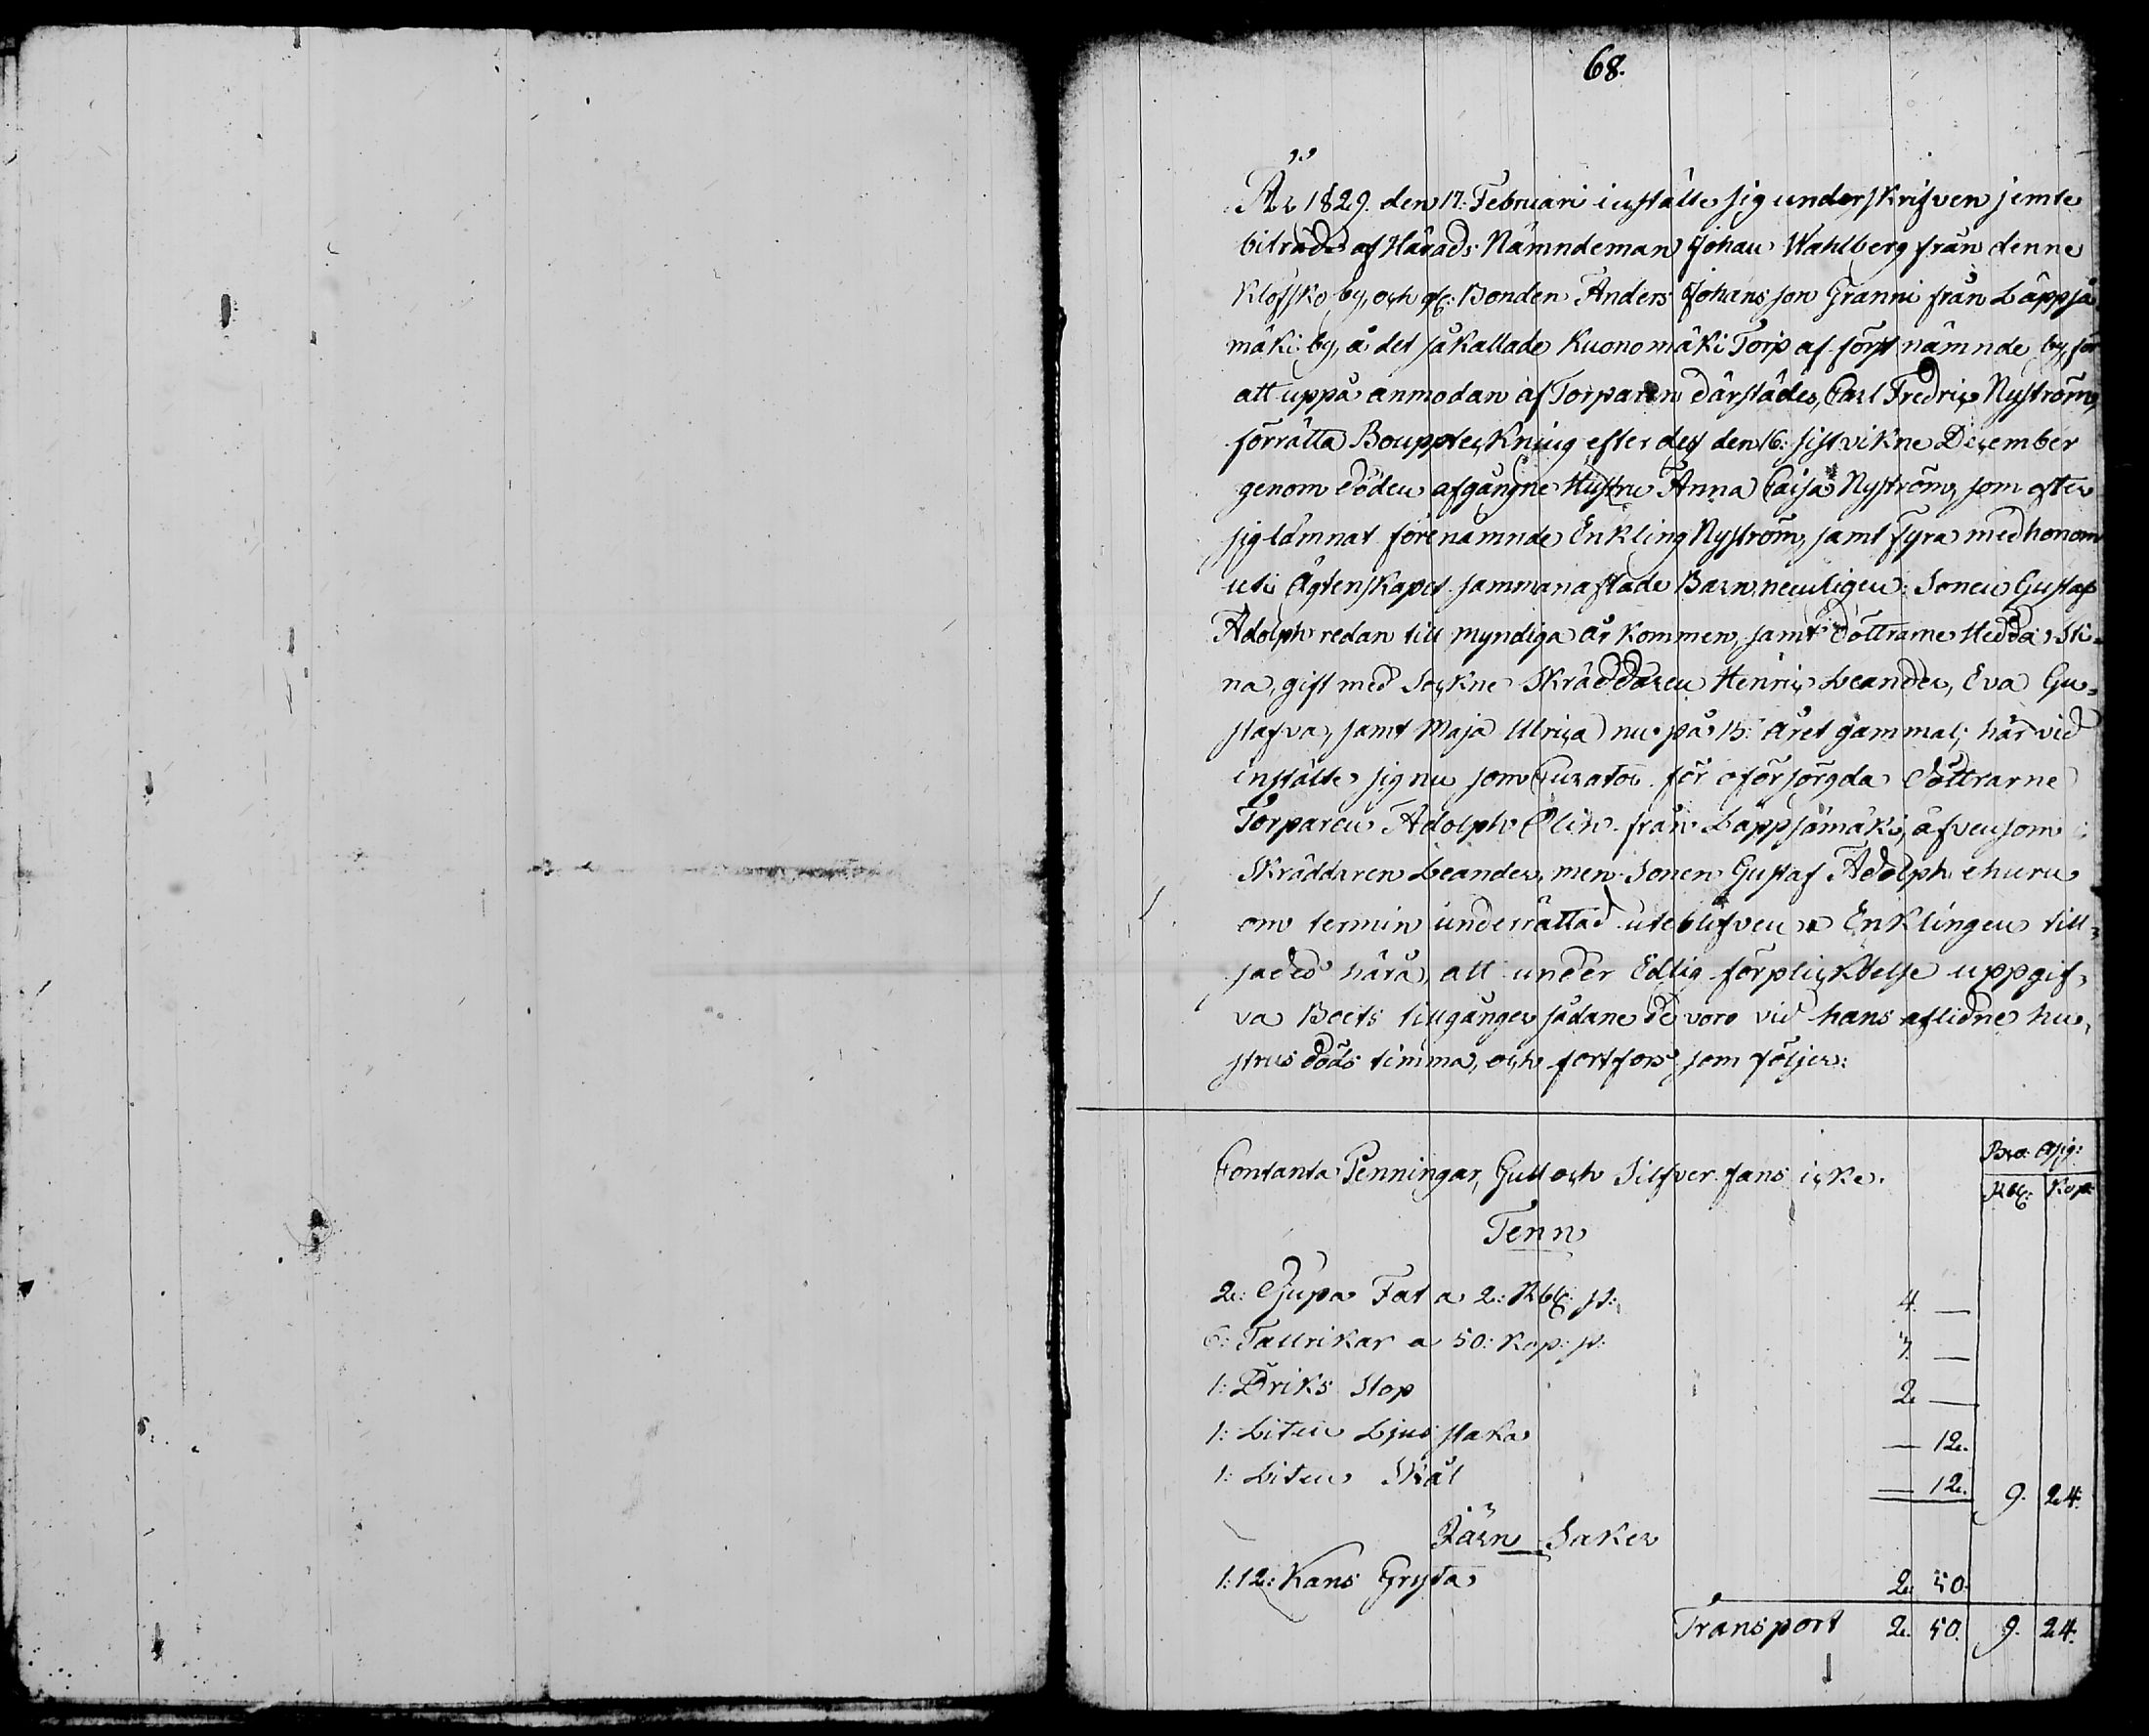 68.
År 1829. den 17. Februari instälte sig underskrifven jemte
biträde af Härads Nämndeman Johan Wahlberg från denne
Klofsko by, och Bonden Anders Johansson Granni från Läppjä
mäki by, å det så kallade Kuonomäki Torp af först nämnde by, för
att uppå anmodan af Torparen därstädes, Carl Fredric Nyström,
förrätta Bouppteckning efter dess den 16. sistvikne December
genom döden afgångne Hustru Anna Caisa Nyström, som efter
sig lämnat förenämnde Enkling Nyström, samt fyra med honom
uti Ägtenskapet sammanaflade Barn nemligen: Sonen Gustaf
Adolph redan till myndiga år kommen, samt döttrarne Hedda Sti=
na, gift med Sockne Skräddaren Henric Leander, Eva Gu=
stafva, samt Maja Ulrica nu på 13: året gammal; härvid
instälte sig nu som Curator för oförsörgda döttrarne
Torparen Adolph Olin från Läppjämäki, äfvensom
Skräddaren Leander, men Sonen Gustaf Adolph ehuru
om termin underrättad uteblifven. Enklingen till=
sades härå, att under Edlig förplicktelse uppgif=
va Boets tillgånger sådane de voro vid hans aflidne hu=
strus döds timma, och fortfors som följer:
Bco: Assig:
Contanta Penningar, Gull och Silfver fans icke.
Rbl: Kop:
Tenn
2: Djupa Fat a 2: Rbl: st: 4. —
6: Tallrikar a 50: Kop: st: 3. —
1: Driks Stop 2 —
1: Liten Ljus staka — 12.
1: Liten Skål — 12. 9. 24.
Järn Saker
1: 12: Kans Gryta 2. 50.
Transport 2. 50. 9. 24.